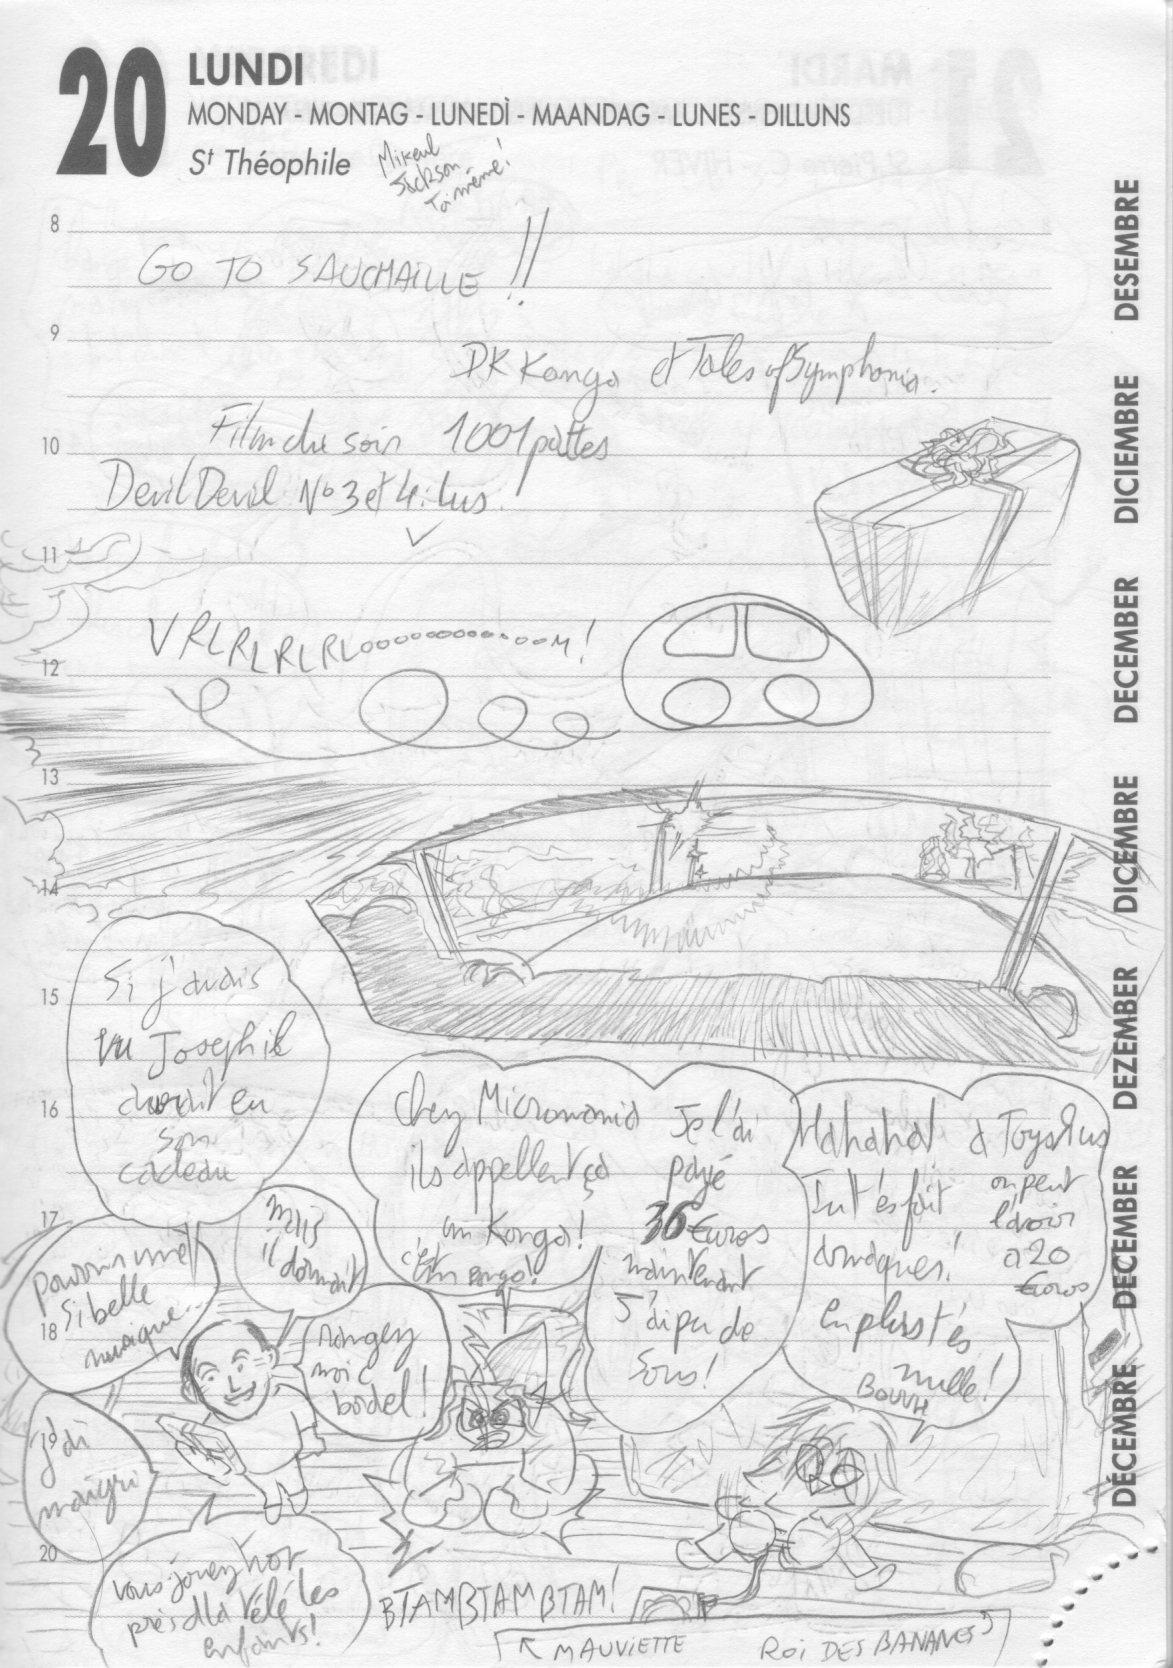 20 LUNDI
MONDAY - MONTAG - LUNEDÌ - MAANDAG - LUNES - DILLUNS
St Théophile
Mikeul
Jackson
Toi même!
8
GO TO SAUCMAILLE !!
9
DK Konga et Tales of Symphonia.
Film du soir 1001 pattes
10
Devil Devil No 3 et 4: lus.
11
VRLRLRLRLooooooooooooM!
12
13
14
15
16
17
18
19
20
Si j'avais
vu Joseph il
aurait eu
son
cadeau
Chez Micromania
ils appellent ça
un Konga!
c'est un Bongo!
Je l'ai
payé
36 Euros
maintenant
J'ai pu de
Sous!
Hahaha!
Tu t'es fait
arnaquer!
En plus t'es
nulle!
BOUUH
a ToysRus
on peut
l'avoir
a 20
Euros
mais
il dormait
pourrir une
si belle
musique..
rangez
moi c
bordel!
j'ai
maigri
vous jouez trop
près d'la télé les
enfants!
BTAMBTAMBTAM!
MAUVIETTE
ROI DES BANANES
DESEMBRE
DICIEMBRE
DECEMBER
DICEMBRE
DEZEMBER
DECEMBER
DÉCEMBRE